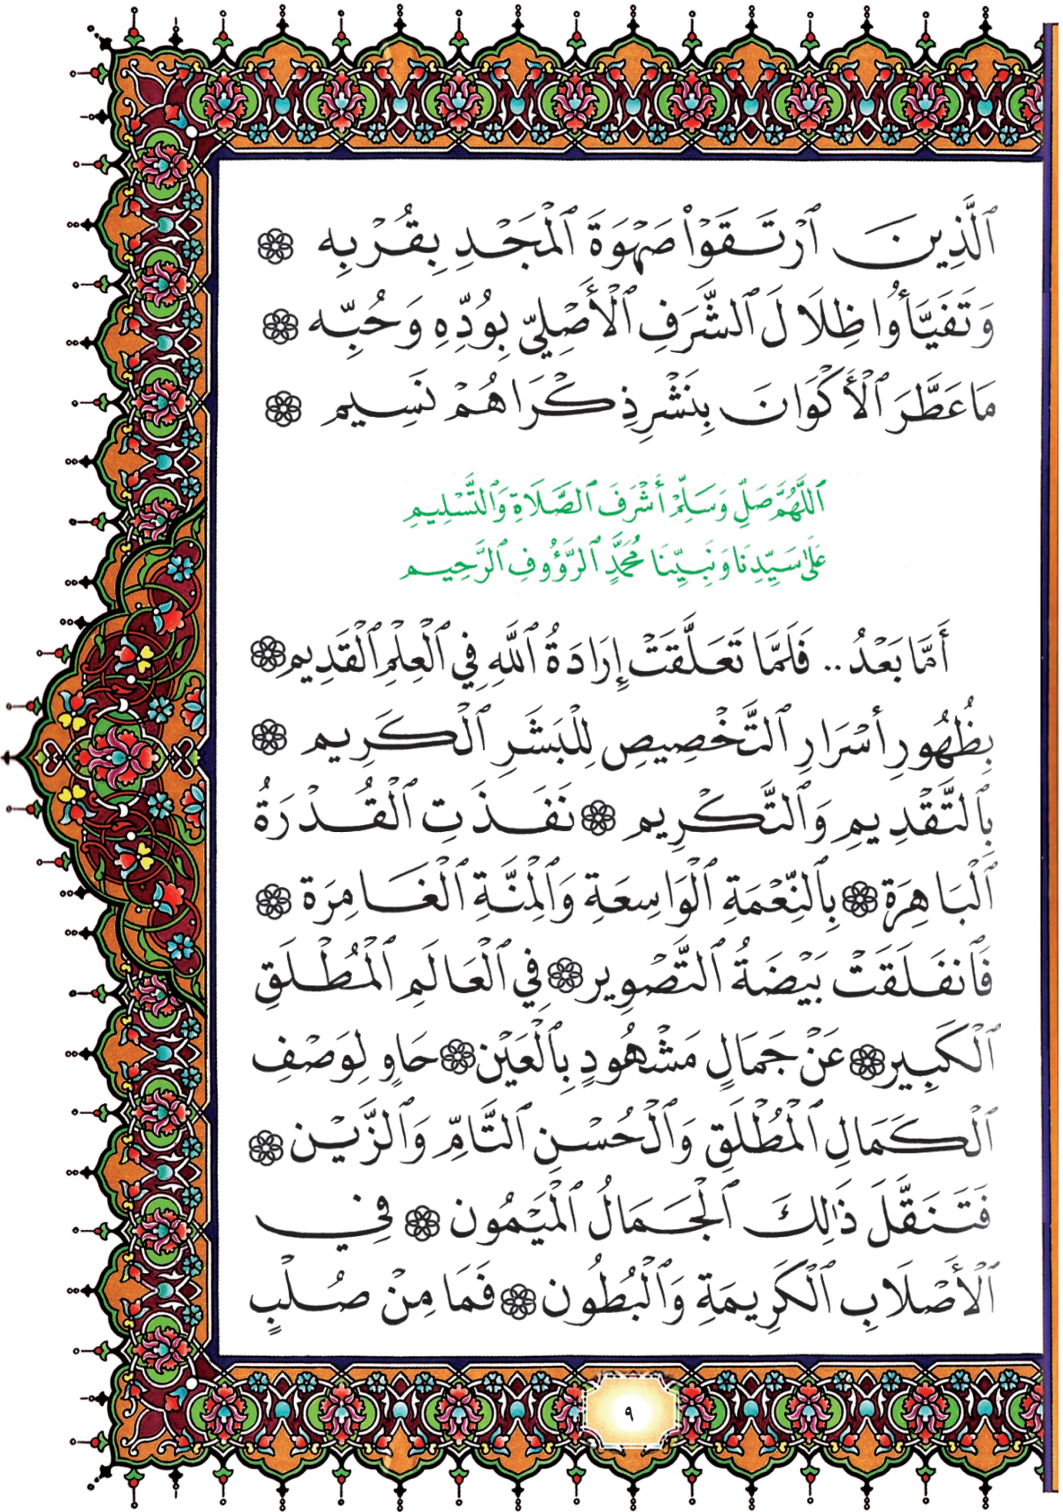 ٱلَّذِينَ ٱرْتَقَوْا۟ صَهْوَةَ ٱلْمَجْدِ بِقُرْبِهِ ۞
وَتَفَيَّأُوا ظِلَالَ ٱلشَّرَفِ ٱلْأَصْلِيِّ بِوُدِّهِ وَحُبِّه ۞
مَا عَطَّرَ ٱلْأَكْوَانَ بِنَشْرِ ذِكْرَاهُمْ نَسِيم ۞
ٱللَّهُمَّ صَلِّ وَسَلِّمْ أَشْرَفَ ٱلصَّلَاةِ وَٱلتَّسْلِيمِ
عَلَىٰ سَيِّدِنَا وَنَبِيِّنَا مُحَمَّدٍ ٱلرَّؤُوفِ ٱلرَّحِيم
أَمَّا بَعْدُ.. فَلَمَّا تَعَلَّقَتْ إِرَادَةُ ٱللَّهِ فِي ٱلْعِلْمِ ٱلْقَدِيمِ ۞
بِظُهُورِ أَسْرَارِ ٱلتَّخْصِيصِ لِلْبَشَرِ ٱلْكَرِيم ۞
بِٱلتَّقْدِيمِ وَٱلتَّكْرِيم ۞ نَفَذَتِ ٱلْقُدْرَةُ
ٱلْبَاهِرَة ۞ بِٱلنِّعْمَةِ ٱلْوَاسِعَةِ وَٱلْمِنَّةِ ٱلْغَامِرَة ۞
فَٱنفَلَقَتْ بَيْضَةُ ٱلتَّصْوِير ۞ فِي ٱلْعَالَمِ ٱلْمُطْلَقِ
ٱلْكَبِير ۞ عَنْ جَمَالٍ مَشْهُودٍ بِٱلْعَيْن ۞ حَاوٍ لِوَصْفِ
ٱلْكَمَالِ ٱلْمُطْلَقِ وَٱلْحُسْنِ ٱلتَّامِّ وَٱلزَّيْن ۞
فَتَنَقَّلَ ذَٰلِكَ ٱلْجَمَالُ ٱلْمَيْمُون ۞ فِي
ٱلْأَصْلَابِ ٱلْكَرِيمَةِ وَٱلْبُطُون ۞ فَمَا مِنْ صُلْبٍ
٩